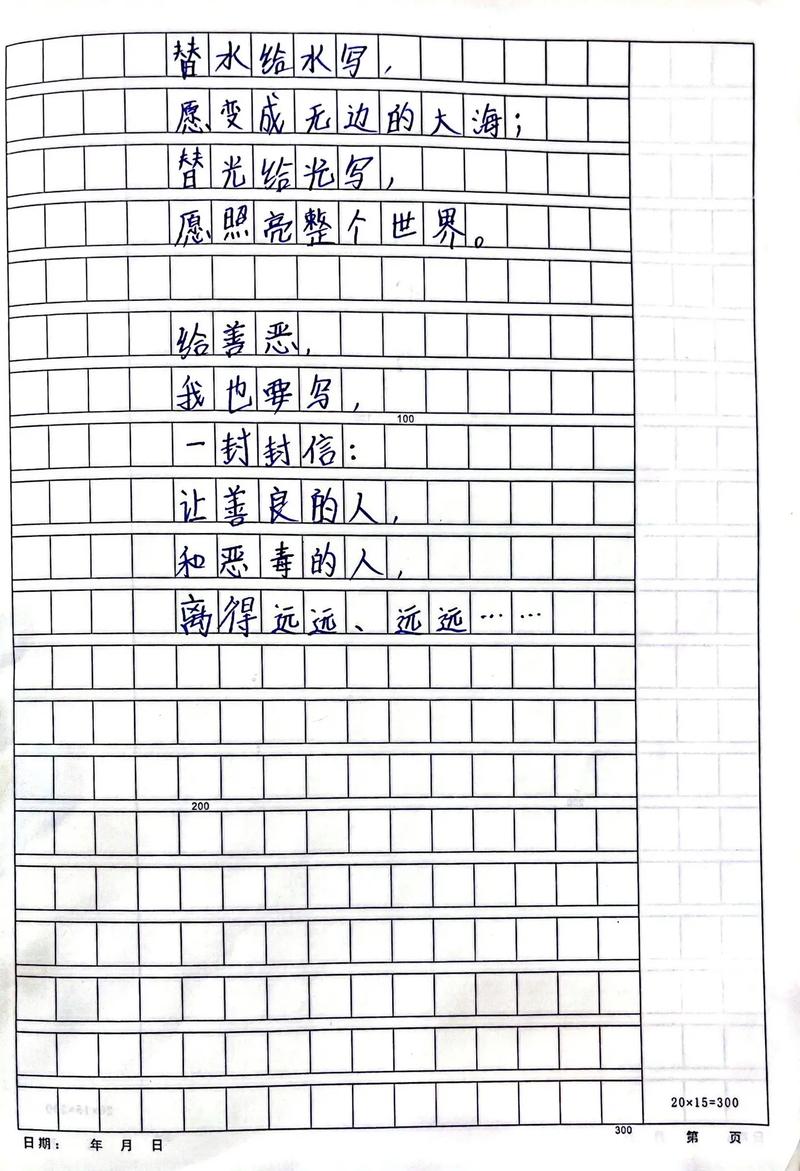 替水给水写，
愿变成无边的大海；
替光给光写，
愿照亮整个世界。
给善恶，
我也要写，
100
一封封信：
让善良的人，
和恶毒的人，
离得远远、远远……
200
20×15=300
300
日期： 年 月 日
第 页